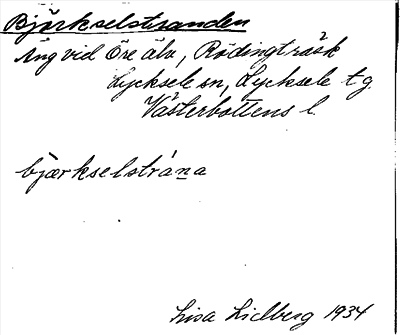 Björkselstranden
Äng vid Öre älv, Rödingträsk
Lycksele sn, Lycksele tg
Västerbottens l.
bjærkselstrána
Lisa Lidberg 1934